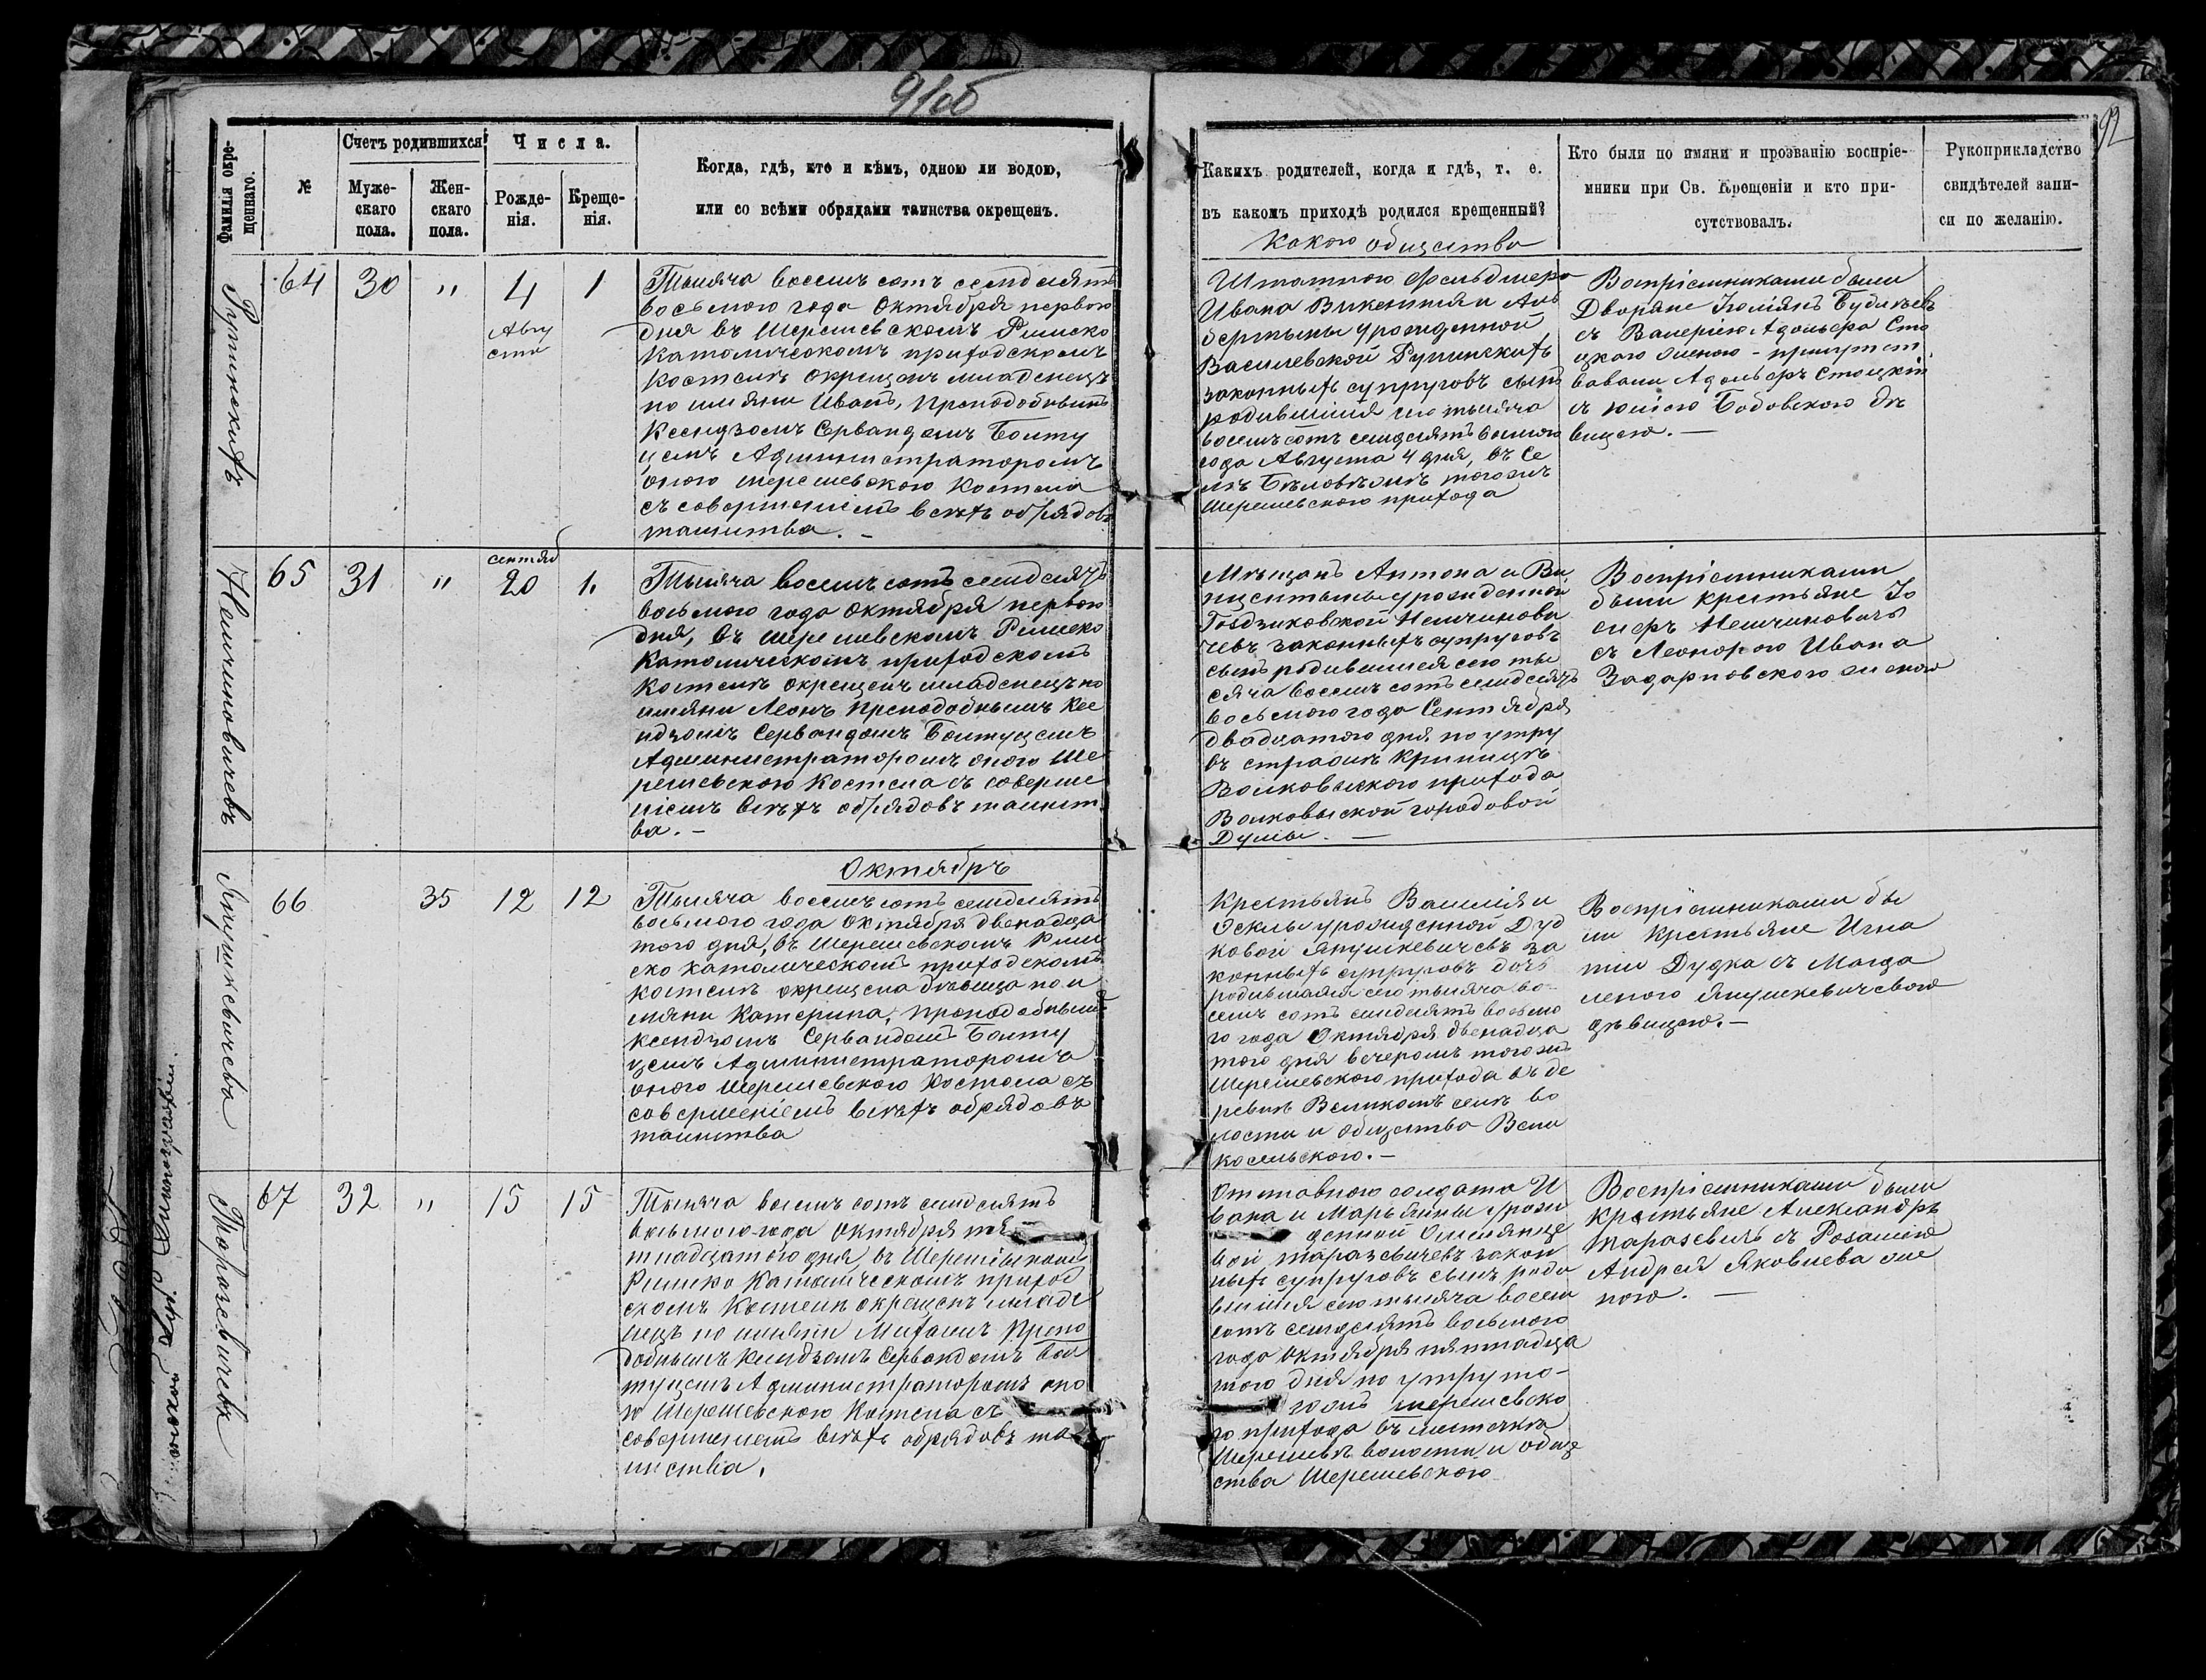 91об
92
Фамилія окре-
щеннаго.
№
Счетъ родившихся
Муже-
скаго
пола.
Жен-
скаго
пола.
Числа.
Рожде-
нія.
Креще-
нія.
Когда, гдѣ, кто и кѣмъ, одною ли водою,
или со всѣми обрядами таинства окрещенъ.
Каких родителей, когда и гдѣ, т. е.
въ какомъ приходѣ родился крещенный?
Какого общества
Кто были по имяни и прозванію воспріе-
мники при Св. Крещеніи и кто при-
сутствовалъ.
Рукоприкладство
свидѣтелей запи-
си по желанію.
Рупинскихъ
64
30
"
4
Авгу
ста
1
Тысяча восемь сотъ семдесятъ
восьмого года Октября перваго
дня въ Шерешевскомъ Римско
Католическомъ приходскомъ
Костелѣ окрещенъ младенецъ
по имяни Иванъ, Преподобнымъ
Ксендзомъ Сервандомъ Болту
цемъ Администраторомъ
оного Шерешевского Костела
съ совершеніемъ всѣхъ обрядовъ
таинства. -
Штатного Фельдшера
Ивана Викентія и Аль
бертыны урожденной
Василевской Рупинскихъ
законныхъ супруговъ сынъ
родившійся сего тысяча
восемь сотъ семдесятъ восмого
года Августа 4 дня, въ Се
лѣ Бѣловѣжѣ тогожъ
Шерешевского прихода
Воспріемниками были
Дворяне
съ Валеріею Адольфа Сто
цкого женою - присутст
вовали Адольфъ Стоцкій
съ Юліею Бобовского дѣ
вицею. —
Немчиновичевъ
65
31
"
сентяб
20
1.
Тысяча восемь сотъ семдесятъ
восьмого года Октября перваго
дня, въ Шерешевскомъ Римско
Католическомъ приходскомъ
Костелѣ окрещенъ младенецъ по
имяни Леонъ Преподобнымъ Ксе
ндзомъ Сервандомъ Болтуцемъ
Администраторомъ оного Ше
решевского Костела съ соверше
ніемъ всѣхъ обрядовъ таинст
ва. -
Мѣщанъ Антона и Ви
центыны урожденной
Гоздзиковской Немчинови
чевъ законныхъ супруговъ
сынъ родившійся сего ты
сяча восемь сотъ семдесятъ
восьмого года Сентября
двадцатого дня по утру
въ стражѣ Криницѣ
Волковыского прихода
Волковыской городовой
Думы. —
Воспріемниками
были крестьяне Іо
сифъ Немчиновичъ
съ Леонорою Ивана
Задарновского женою
Янушкевичева
66
35
12
12
Октябрь
Тысяча восемь сотъ семдесятъ
восьмого года Октября двенадца
того дня, въ Шерешевскомъ Рим
ско католическомъ приходскомъ
костелѣ окрещена дѣвица по и
мяни Катерина, преподобнымъ
ксендзомъ Сервандомъ Болту
цемъ Администраторомъ
оного Шерешевского Костела съ
совершеніемъ всѣхъ обрядовъ
таинства
Крестьянъ Василія и
Феклы урожденной Дуд
ковой Янушкевичевъ за
конныхъ супруговъ дочь
родившаяся сего тысяча во-
семь сотъ семдесятъ восьмо
го года Октября двенадца
того дня вечеромъ тогожъ
Шерешевского прихода въ де
ревнѣ Великомъ селѣ во
лости и общества Вели
косельского. -
Воспріемниками бы
ли Крестьяне Игна
тій Дудка съ Магда
леною Янушкевичевою
дѣвицею. -
Таразевичевъ
67
32
"
15
15
Тысяча восемь сотъ семдесятъ
восьмого года Октября пя
тнадцатого дня, въ Шерешевскомъ
Римско Католическомъ приход
скомъ Костелѣ окрещенъ младе
нецъ по имяни Михаилъ Препо
добнымъ Ксендзомъ Сервандомъ Бол
туцемъ Администраторомъ оно
го Шерешевского Костела съ
совершеніемъ всѣхъ обрядовъ та
инства.
Отставного солдата И
вана и Марьянны урож
денной Омелянце
вой Таразевичевъ закон
ныхъ супруговъ сынъ роди
вшійся сего тысяча восем
сотъ семдесятъ восьмого
года Октября пятнадца
того дня по утру то-
гожъ Шерешевско
го прихода въ местечкѣ
Шерешевѣ волости и общ
ства Шерешевского
Воспріемниками были
Крестьяне Александръ
Таразевичъ съ Розаліею
Андрея Яковлева же
ною. —